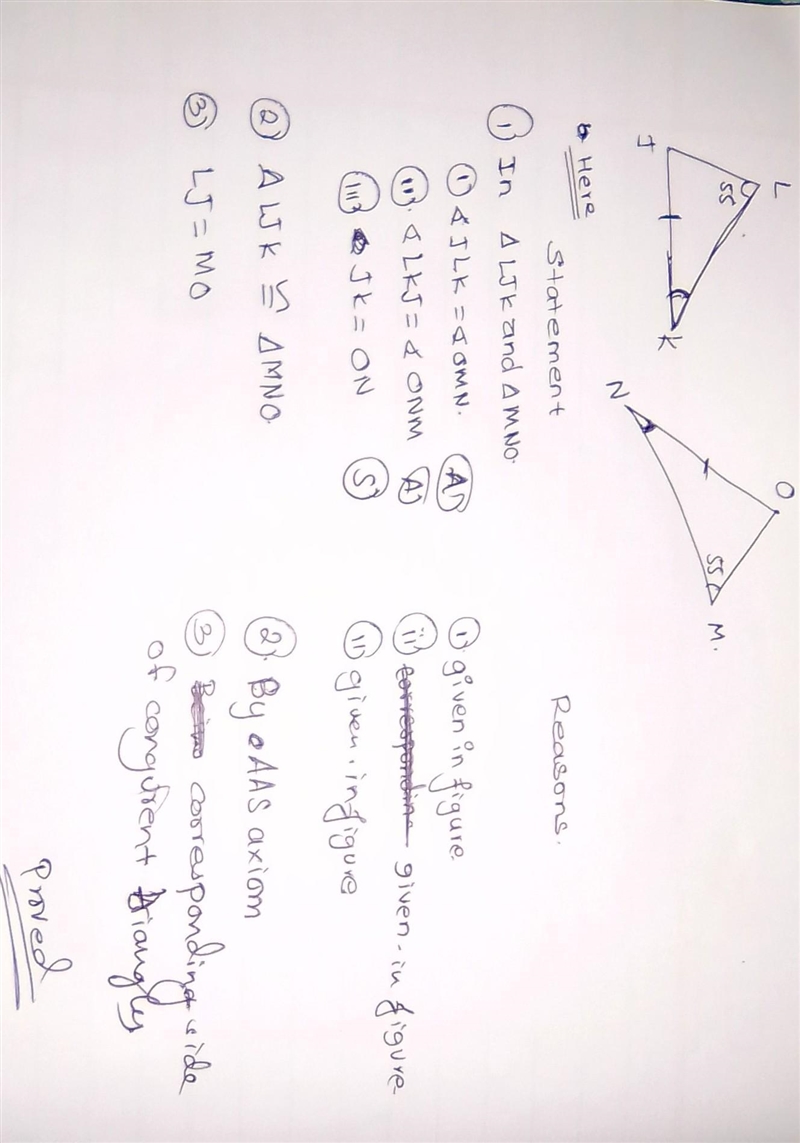 L
55
J
K
N
O
55
M.
Here
Statement
Reasons.
① In Δ LJK and Δ MNO.
① ∢ JLK = ∢ OMN. Ⓐ
ⓘⓘ ∢ LKJ = ∢ ONM Ⓐ
ⓘⓘⓘ JK = ON Ⓢ
① given in figure.
ⓘⓘ given. in figure
ⓘⓘ given. in figure
② Δ LJK ≅ Δ MNO.
② By AAS axiom
③ LJ = MO
③ corresponding side
of congurent triangles
Proved